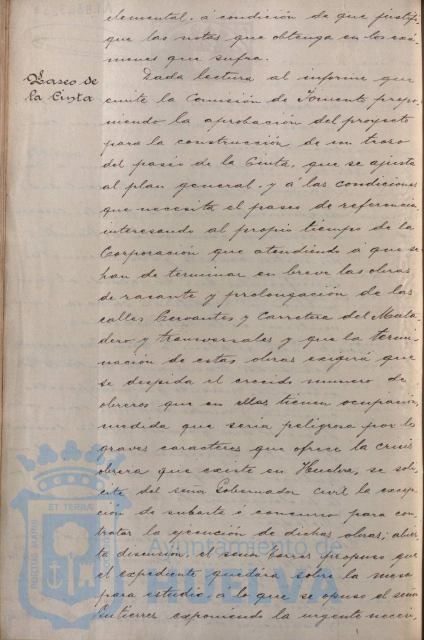 elemental, á condición de que justifi-
que las notas que obtenga en los exá-
menes que sufra.
Paseo de
la Cinta
Dada lectura al informe que
emite la Comisión de Fomento propo-
niendo la aprobación del proyecto
para la construcción de un trozo
del paseo de la Cinta, que se ajusta
al plan general y á las condiciones
que necesita el paseo de referencia
interesando al propio tiempo de la
Corporación que atendiendo á que se
han de terminar en breve las obras
de rasante y prolongación de las
calles Cervantes y Carretera del Mata-
dero y transversales y que la termi-
nación de estas obras exigirá que
se despida el crecido numero de
obreros que en ellas tienen ocupación,
medida que seria peligrosa por los
graves caracteres que ofrece la crisis
obrera que existe en Huelva, se soli-
cite del señor Gobernador civil la excep-
ción de subasta ó concurso para con-
tratar la ejecución de dichas obras; abier-
ta discusión, el señor propuso que
el expediente quedára sobre la mesa
para estudio, á lo que se opuso el señor
Gutierrez exponiendo la urgente neces
PORTUS MARIS
ET TERRÆ
Ayuntamiento de
HUELVA